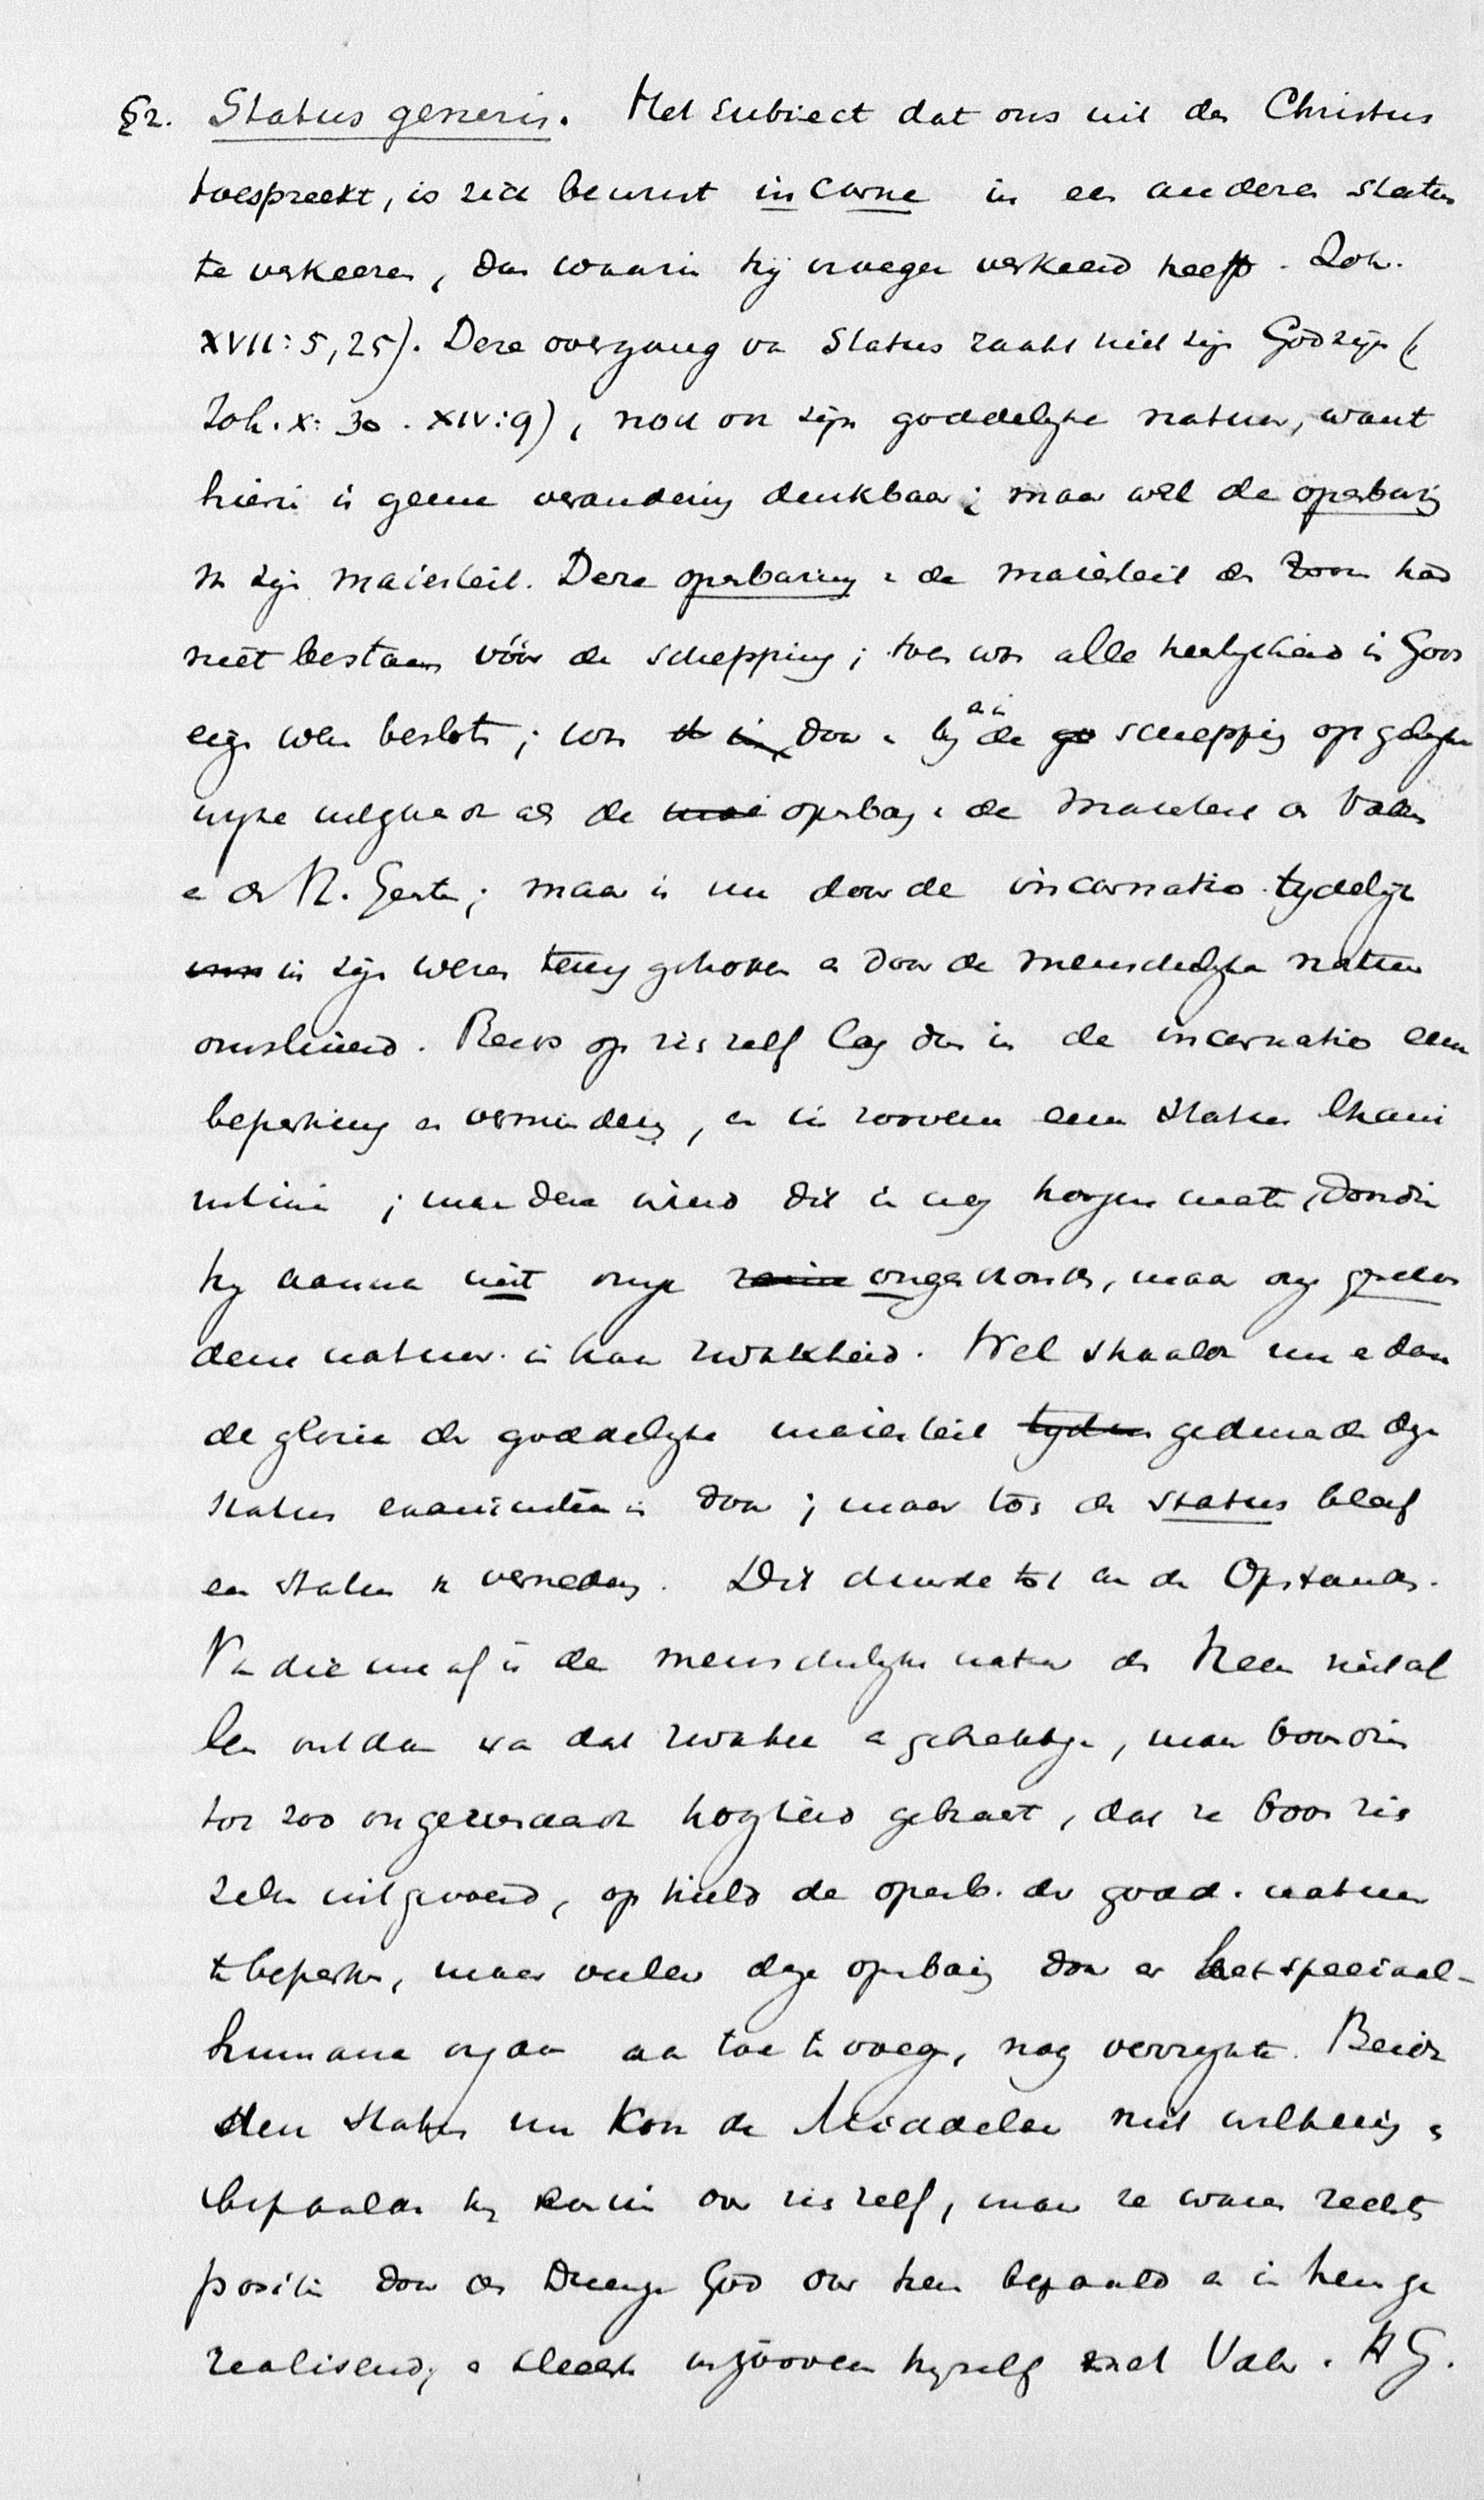 §2. Status generis. Het subiect dat ons uit den Christus
toespreekt, is zich bewust in carne in een anderen status
te verkeeren, dan waarin hij vroeger verkeerd heeft. Joh.
XVII: 5, 25). Deze overgang van status raakt niet zijn Godzijn (
Joh. X: 30. XIV: 9), noch ook zijn goddelijke natuur, want
hierin is geene verandering denkbaar; maar wel de openbaring
van zijn maiesteit. Deze openbaring van de maiesteit des Zoons had
niet bestaan vóór de schepping; toen was alle heerlijkheid in Gods
eigen wezen besloten; was door en bij de schepping op gelijke
wijze uitgegaan als de openbaring van de maiesteit des Vaders
en des H. Geestes; maar is nu door de incarnatio tydelijk
in zijn wezen teruggetrokken en door de menschelyke natuur
omsluierd. Reeds op zich zelf lag dus in de incarnatio eene
beperking en vermindering, en in zooverre een status exani
nitionis; maar deze werd dit in nog hooger mate, doordien
hij aanna niet onze ongeschonden, maar onze gevallen
dene natuur in haar zwakheid. Wel straalde nu en dan
de glorie der goddelyke maiesteit gedurende dezen
status exaninitionis door; maar toch de status bleef
een status van vernedering. Dit duurde tot aan de Opstanding.
Van die ure af is de menschelyke natuur des Heeren niet al
leen ontdaan van dat zwakke en gebrekkige, maar bovendien
tot zoo ongeevenaarde hoogheid gebracht, dat ze boven zich
zelve uitgevoerd, ophield de openb. der godd. natuur
te beperken, maar veeleer deze openbaring door er het speciaal-
humane orgaan aan toe te voegen, nog verrijkte. Beide
deze staten nu kon de Middelaar niet willekeurig
bepaalde hij over zich zelf, maar ze waren rechts
positie door den Drieenigen God over hem bepaald en in hem ge
realiseerd, en slechts in zooverre hijzelf met Vader en HG.